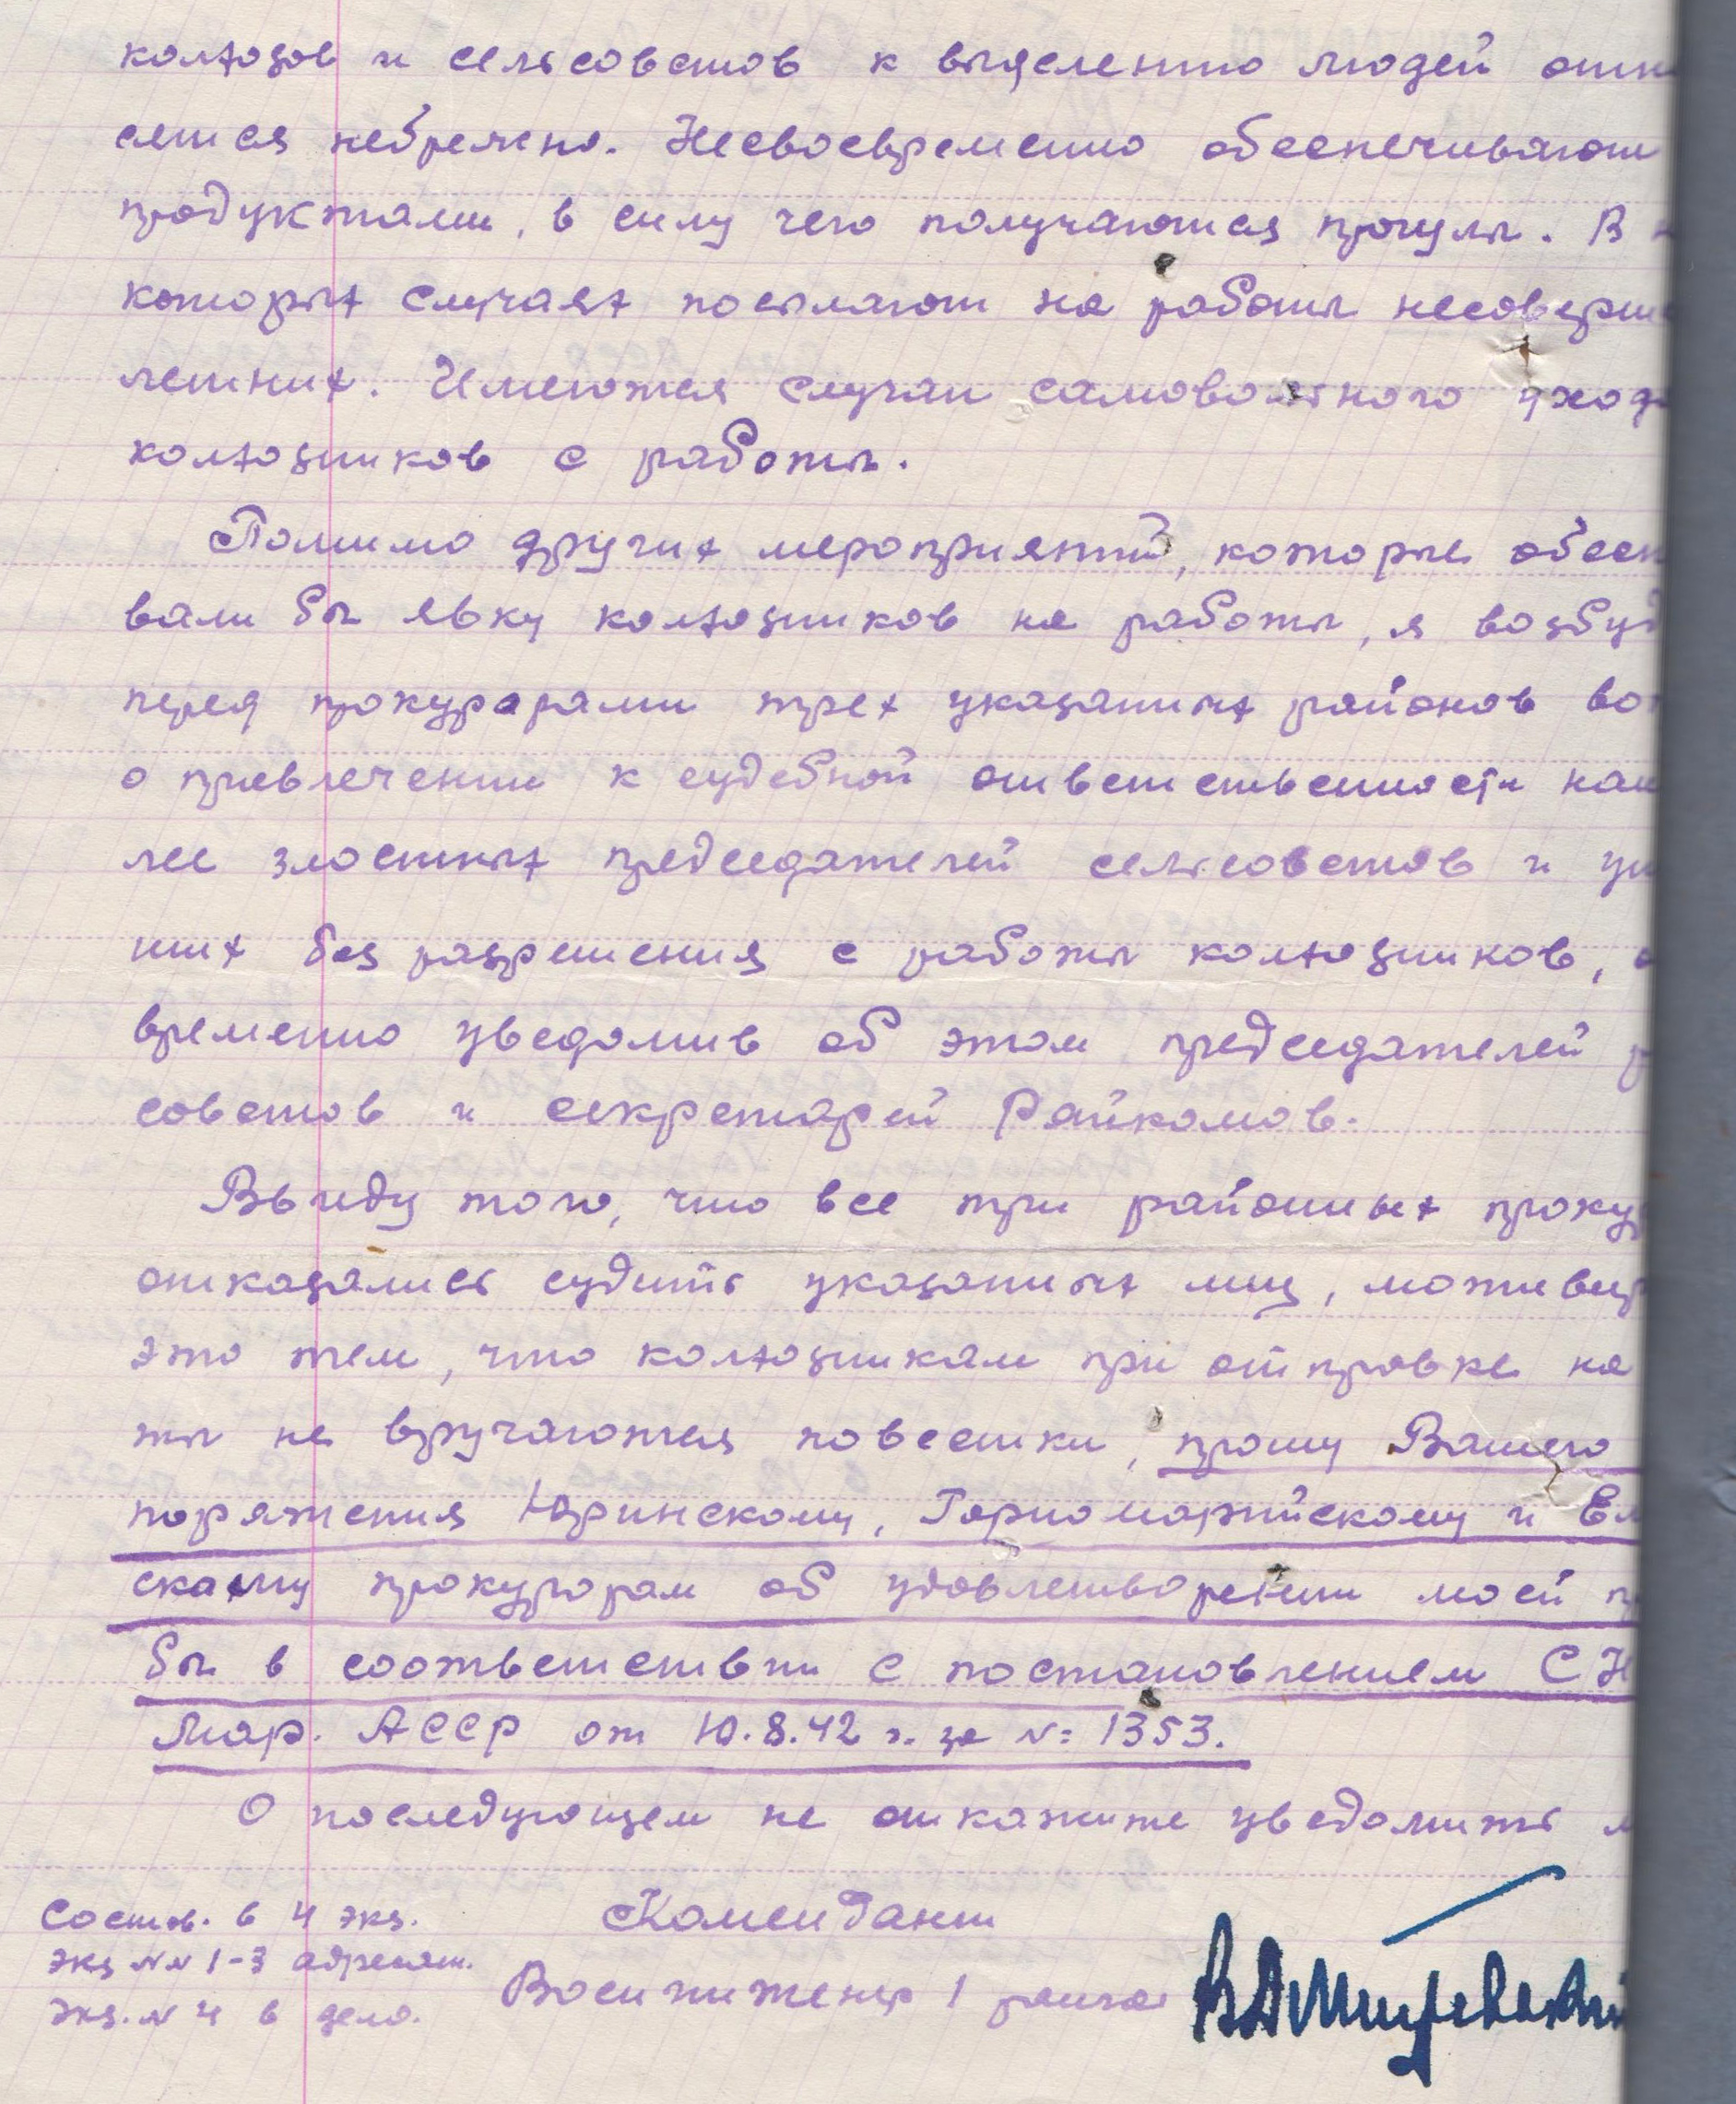 колхозов и сельсоветов к выделению людей отн
сятся небрежно. Несвоевременно обеспечивают
продуктами, в силу чего получаются прогулы. В
которых случаях посылают на работы несоверше
летних. Имеются случаи самовольного ухода
колхозников с работы.
Помимо других мероприятий, которые обесп
вали бы явку колхозников на работы, я возбуд
перед прокурорами трех указанных районов во
о привлечении к судебной ответственности наи
лее злостных председателей сельсоветов и уш
ших без разрешения с работы колхозников, о
временно уведомив об этом председателей р
советов и секретарей Райкомов.
Ввиду того, что все три районных прокур
отказались судить указанных лиц, мотивир
это тем, что колхозникам при отправке на
ты не вручаются повестки, прошу Вашего
поряжения Юринскому, Горномарийскому и Ел
скому прокурорам об удовлетворении моей пр
бы в соответствии с постановлением СН
Мар. АССР от 10.8.42 г. за №: 1353.
О последующем не откажите уведомить м
Состав. в 4 экз.
экз №№ 1-3 адресат.
экз. № 4 в дело.
Комендант
Военинженер 1 ранга